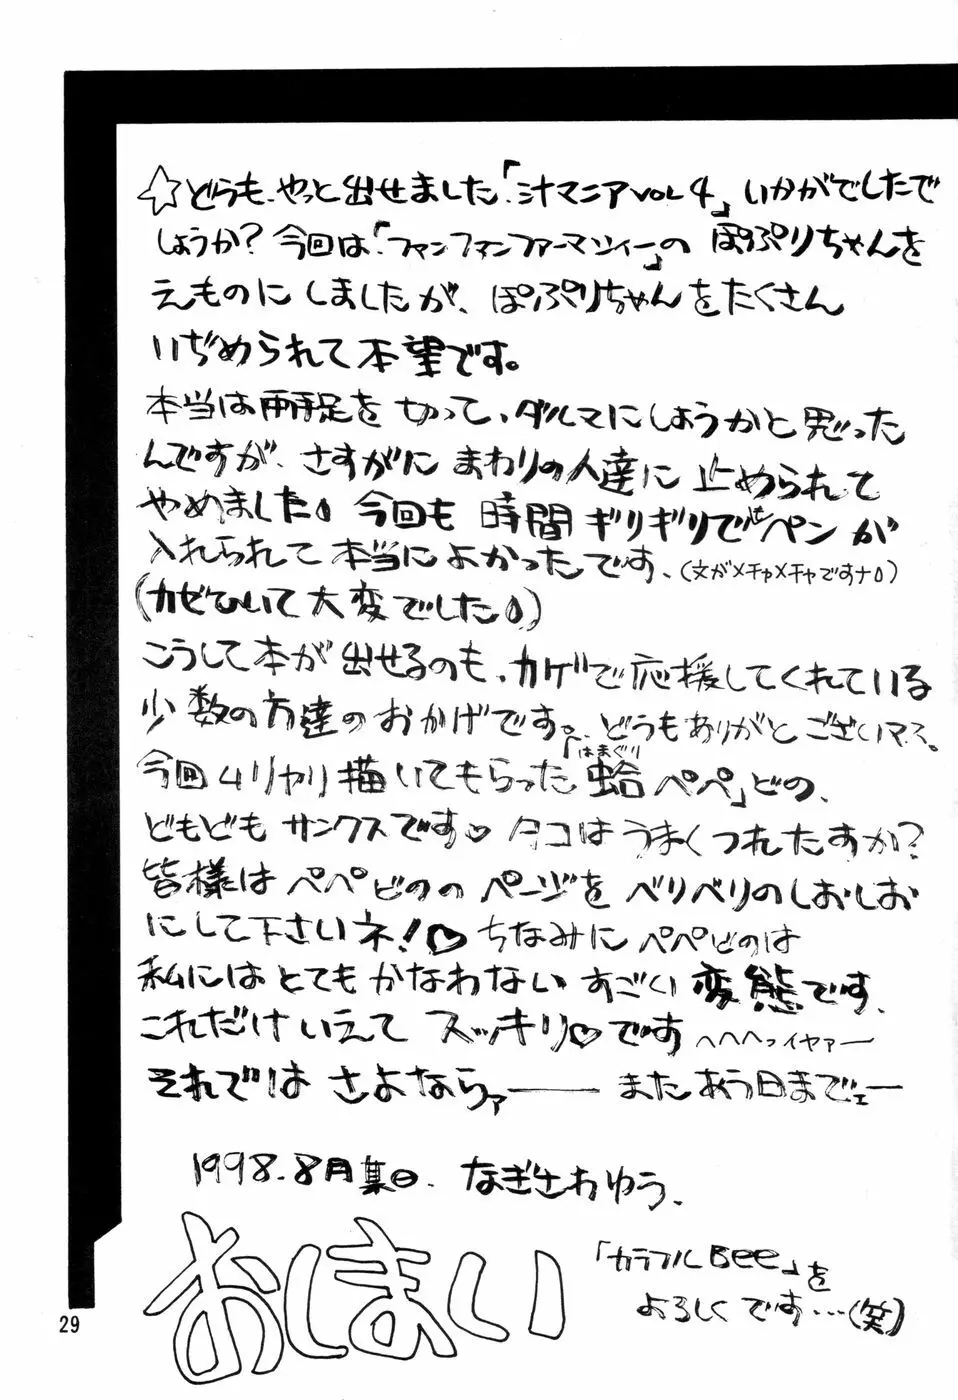 ☆どうも、やっと出せました「汁マニアvol 4」いかがでしたで
しょうか?今回は「ファンファンファーマシィー」の ぽぷりちゃんを
えものにしましたが、ぽぷりちゃんをたくさん
いぢめられて本望です。
本当は両手足を切って、ダルマにしようかと思った
んですが、さすがにまわりの人達に止められて
やめました。今回も時間ギリギリでペンが
入れられて本当によかったです、(文がメチャメチャですナ)
(カゼひいて大変でした)
こうして本が出せるのも、カゲで応援してくれている
少数の方達のおかげです。どうもありがとございマス。
はまぐり
今回ムリヤリ描いてもらった「蛤ペペ」どの、
どもどもサンクスです♡タコはうまくつれたすか?
皆様はペペどののページをベリベリのしおしお
にして下さいネ!♡ちなみにペペどのは
私にはとてもかなわないすごい変態です、
これだけいえてスッキリ♡です へへへっイヤァー
それではさよならァー またあう日までェー
1998.8月集日、なぎさわゆう、
おしまい
「カラフルBee」を
よろしくです…(笑)
29